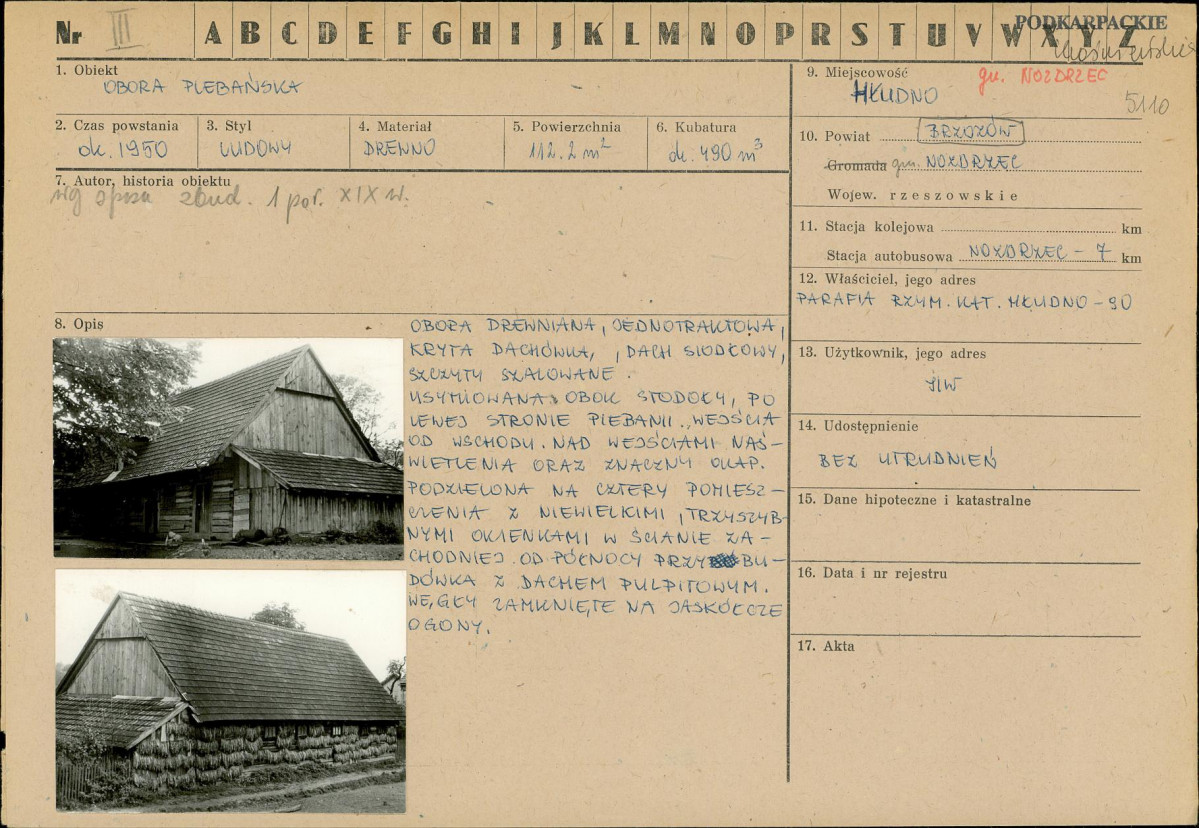 Nr III A B C D E F G H I J K L M N O P R S T U V W X Y Z
PODKARPACKIE
1. Obiekt
OBORA PLEBAŃSKA
2. Czas powstania
ok. 1950
3. Styl
LUDOWY
4. Materiał
DREWNO
5. Powierzchnia
112.2 m²
6. Kubatura
ok. 490 m³
7. Autor, historia obiektu
wg opisu zbud. 1 poł. XIX w.
8. Opis
OBORA DREWNIANA, JEDNOTRAKTOWA,
KRYTA DACHÓWKĄ, , DACH SIODŁOWY,
SZCZYTY SZALOWANE.
USYTUOWANA OBOK STODOŁY, PO
LEWEJ STRONIE PLEBANII. WEJŚCIA
OD WSCHODU. NAD WEJŚCIAMI NAŚ-
WIETLENIA ORAZ ZNACZNY OKAP.
PODZIELONA NA CZTERY POMIESZ-
CZENIA Z NIEWIELKIMI, TRZYSZYB-
NYMI OKIENKAMI W ŚCIANIE ZA-
CHODNIEJ. OD PÓŁNOCY PRZYBU-
DÓWKA Z DACHEM PULPITOWYM.
WĘGŁY ZAMKNIĘTE NA JASKÓŁCZE
OGONY.
9. Miejscowość
gm. NOZDRZEC
HŁUDNO
5110
10. Powiat BRZOZÓW
Gromada gm. NOZDRZEC
Wojew. rzeszowskie
11. Stacja kolejowa km
Stacja autobusowa NOZDRZEC - 7 km
12. Właściciel, jego adres
PARAFIA RZYM. KAT. HŁUDNO - 90
13. Użytkownik, jego adres
J/W
14. Udostępnienie
BEZ UTRUDNIEŃ
15. Dane hipoteczne i katastralne
16. Data i nr rejestru
17. Akta